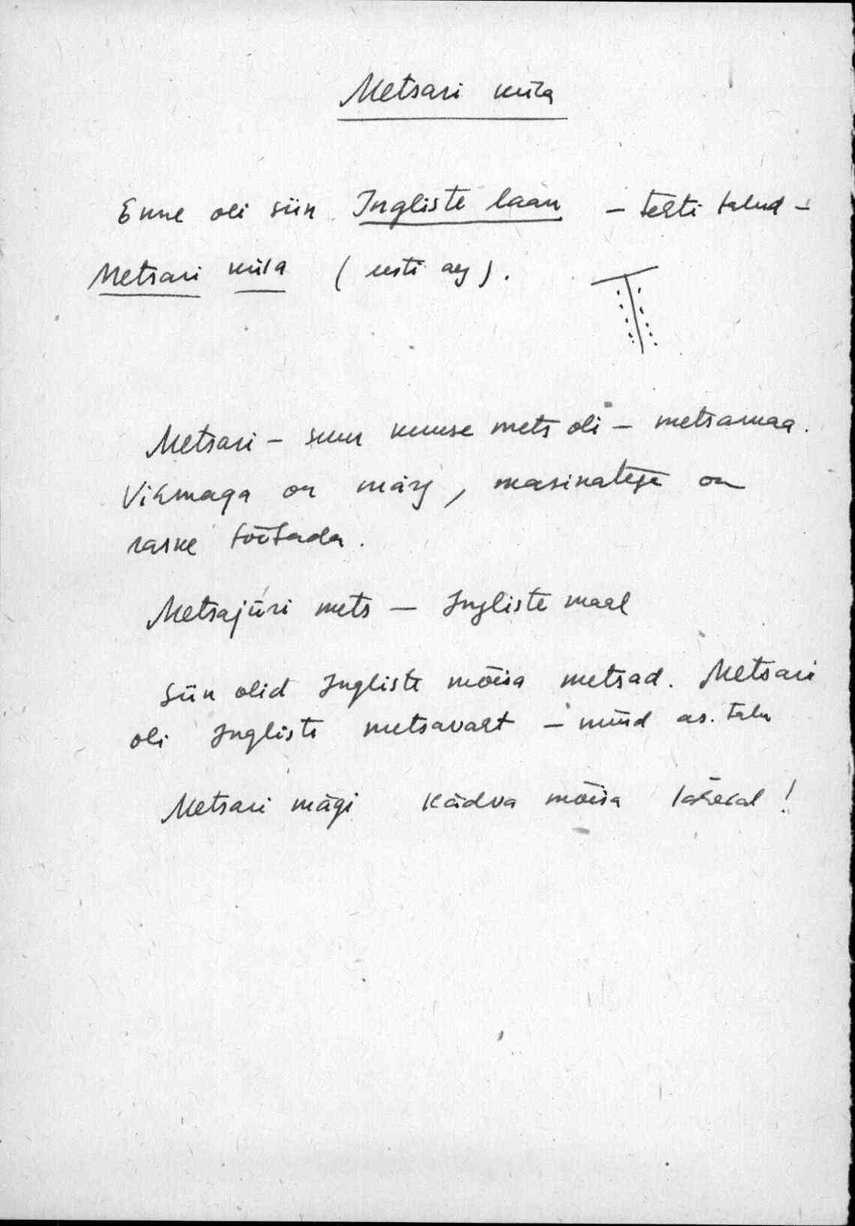 Metsari küla
Enne oli siin Ingliste laan – tehti talud –
Metsari küla (eesti aeg).
Metsari – suur kuuse mets oli – metsamaa.
Vihmaga on märg, masinatega on
raske töötada.
Metsajüri mets – Ingliste maal
Siin olid Ingliste mõisa metsad. Metsari
oli Ingliste metsavaht – nüüd as. talu
Metsari mägi Kädva mõisa lähedal!